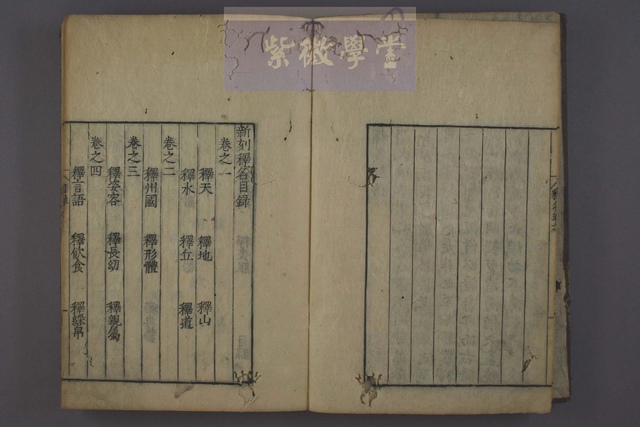 紫微學堂
新刻釋名目錄
卷之一
釋天 釋地 釋山
釋水 釋丘 釋道
卷之二
釋州國 釋形體
卷之三
釋姿容 釋長幼 釋親屬
卷之四
釋言語 釋飲食 釋綵帛